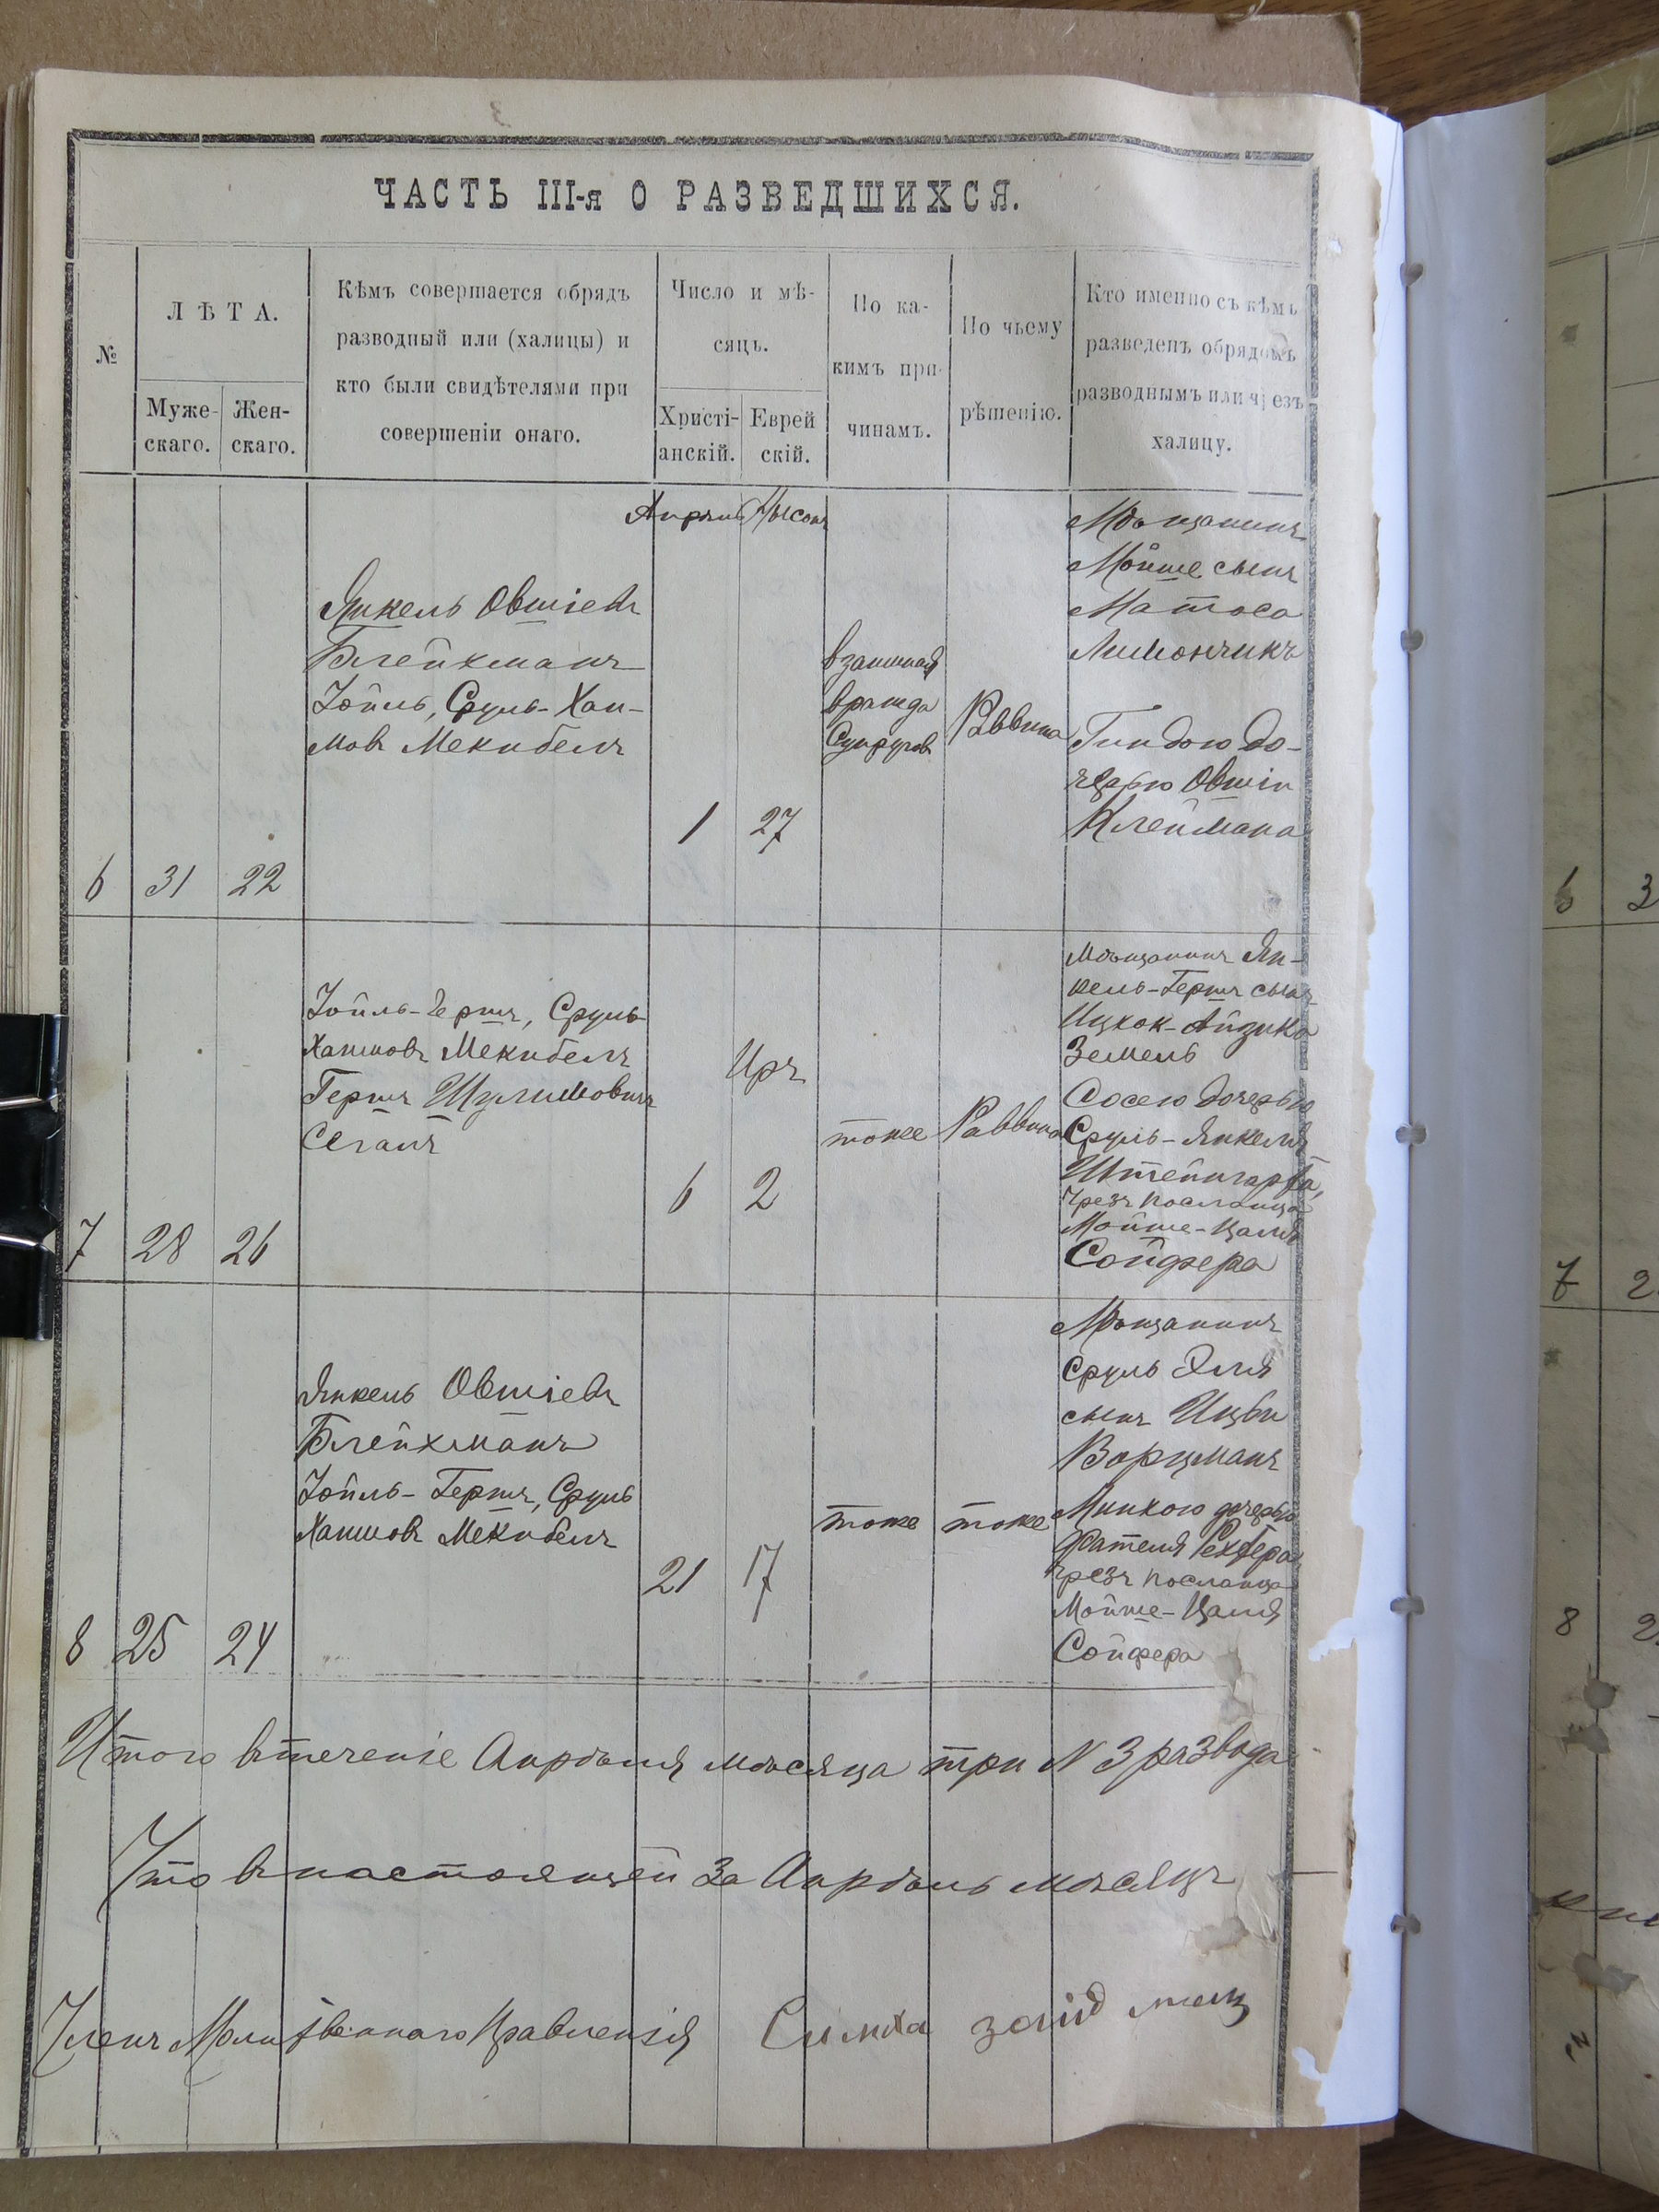 ЧАСТЬ III-я О РАЗВЕДШИХСЯ.
№
ЛѢТА.
Муже-
скаго.
Жен-
скаго.
Кѣмъ совершается обрядъ
разводный или (халицы) и
кто были свидѣтелями при
совершеніи онаго.
Число и мѣ-
сяцъ.
Христі-
анскій.
Еврей
скій.
По ка-
кимъ при-
чинамъ.
По чьему
рѣшенію.
Кто именно съ кѣмъ
разведенъ обрядомъ
разводнымъ или чрезъ
халицу.
6
31
22
Янкель Овшіевъ
Блейхманъ
Іойль, Сруль-Хаи-
мовъ Мекибелъ
Апрѣль
1
Нысонъ
27
взаимная
вражда
Супруговъ
Раввина
Мѣщанинъ
Мойше сынъ
Матоса
Лимончикъ
Гиндою до-
черью Овшіи
Клеймана
7
28
26
Іойль-Гершъ, Сруль
Хаимовъ Мекибелъ
Гершъ Шулимовичъ
Сеганъ
6
Иръ
2
тоже
Раввина
Мѣщанинъ Ян-
кель-Гершъ сынъ
Ицкок-Айзика
Земель
Сосею дочерью
Сруль-Янкеля
Штейнгарта,
чрезъ посланца
Мойше-Цаля
Сойфера
8
25
24
Янкель Овшіевъ
Блейхманъ
Іойль-Гершъ, Сруль
Хаимовъ Мекибелъ
21
17
тоже
тоже
Мѣщанинъ
Сруль Эля
сынъ Ицви
Ворцманъ
Минкою дочерью
Фателя
чрезъ посланца
Мойше-Цаля
Сойфера
Итого втеченіе Апрѣля мѣсяца три N 3 развода
Что въ настоящей за Апрѣль мѣсяцъ
Членъ Молитвеннаго Правленія Симха